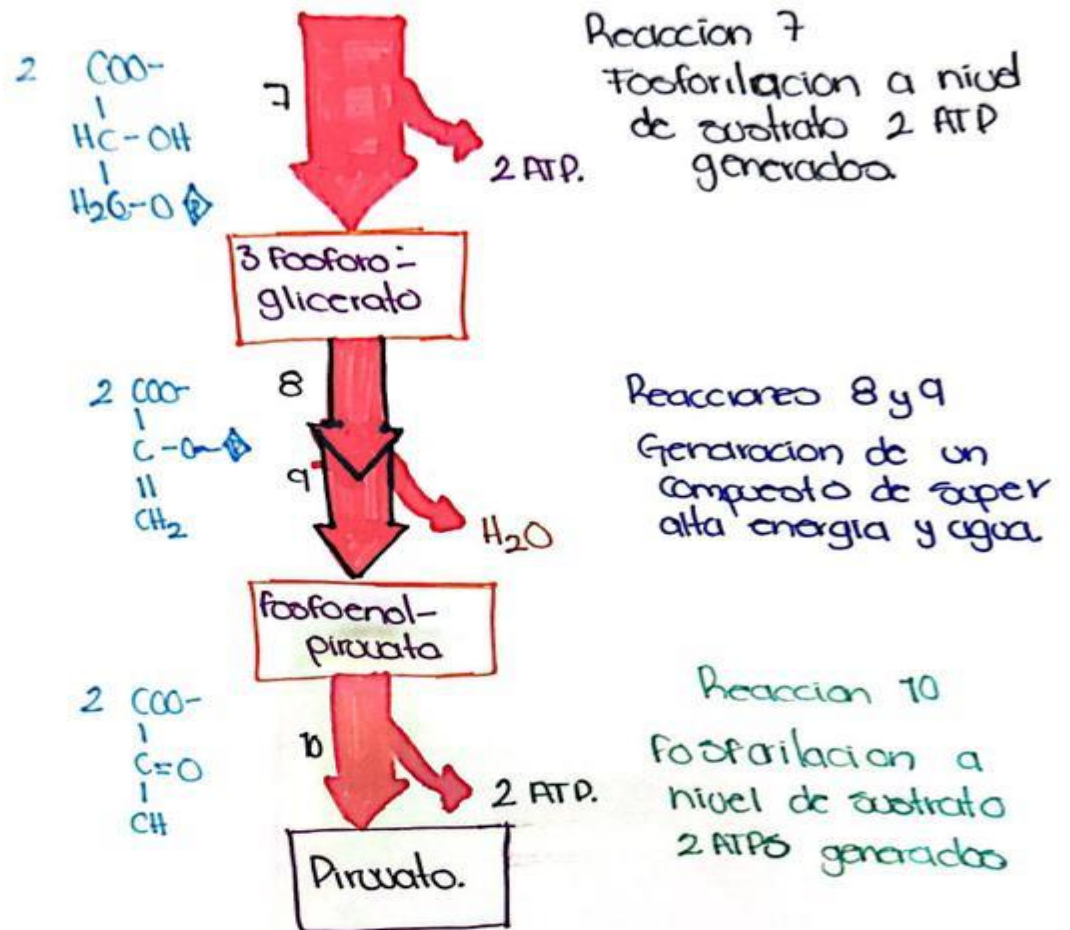 Reaccion 7
Fosforilacion a nivel
de sustrato 2 ATP
generados
2 COO-
HC-OH
H2C-O P
7
2 ATP.
3 fosforo-
glicerato
8
2 COO-
C-O~P
CH2
9
H2O
Reacciones 8 y 9
Genaracion de un
compuesto de super
alta energia y agua.
fosfoenol-
piruvato
2 COO-
C=O
CH
10
2 ATP.
Reaccion 10
fosforilacion a
nivel de sustrato
2 ATPS generados
Piruvato.